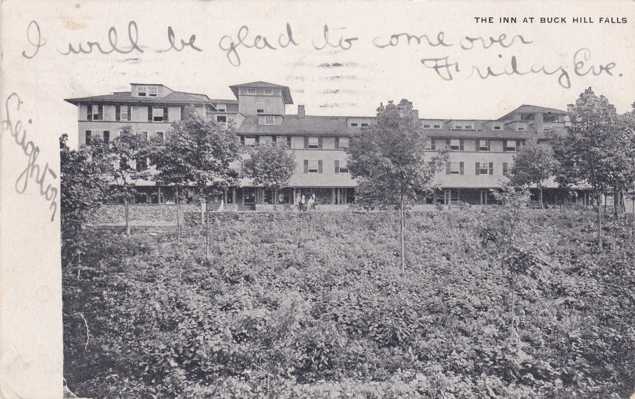 THE INN AT BUCK HILL FALLS
I will be glad to come over
Friday Eve.
Leighton